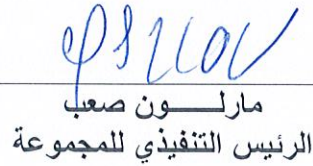 مارلـــون صعب
الرئيس التنفيذي للمجموعة